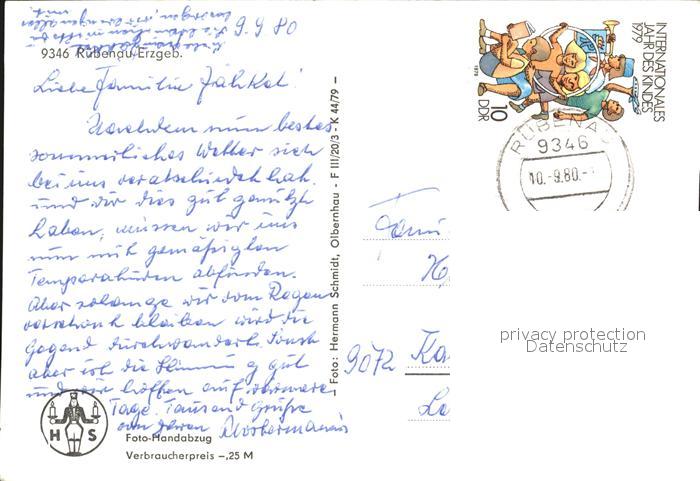 9.9.80
9346 Rübenau/Erzgeb.
Liebe Familie
Nachdem nun bestes
sommerliches Wetter sich
bei uns verabschiedet hat
und wir dies gut genützt
haben, müssen wir uns
nun mit gemäßigten
Temperaturen abfinden.
Aber solange wir vom Regen
verschont bleiben wird die
Gegend durchwandert. Sonst
aber ist die Stimmung gut
und wir hoffen auf schönere
Tage. Tausend Grüße
von Ihren
H S
Foto-Handabzug
Verbraucherpreis –,25 M
Foto: Hermann Schmidt, Olbernhau - F III/20/3 - K 44/79 –
INTERNATIONALES
JAHR DES KINDES
1979
10
DDR
RÜBENAU
9346
10.-9.80.-
Fami
9072 Ka
privacy protection
Datenschutz